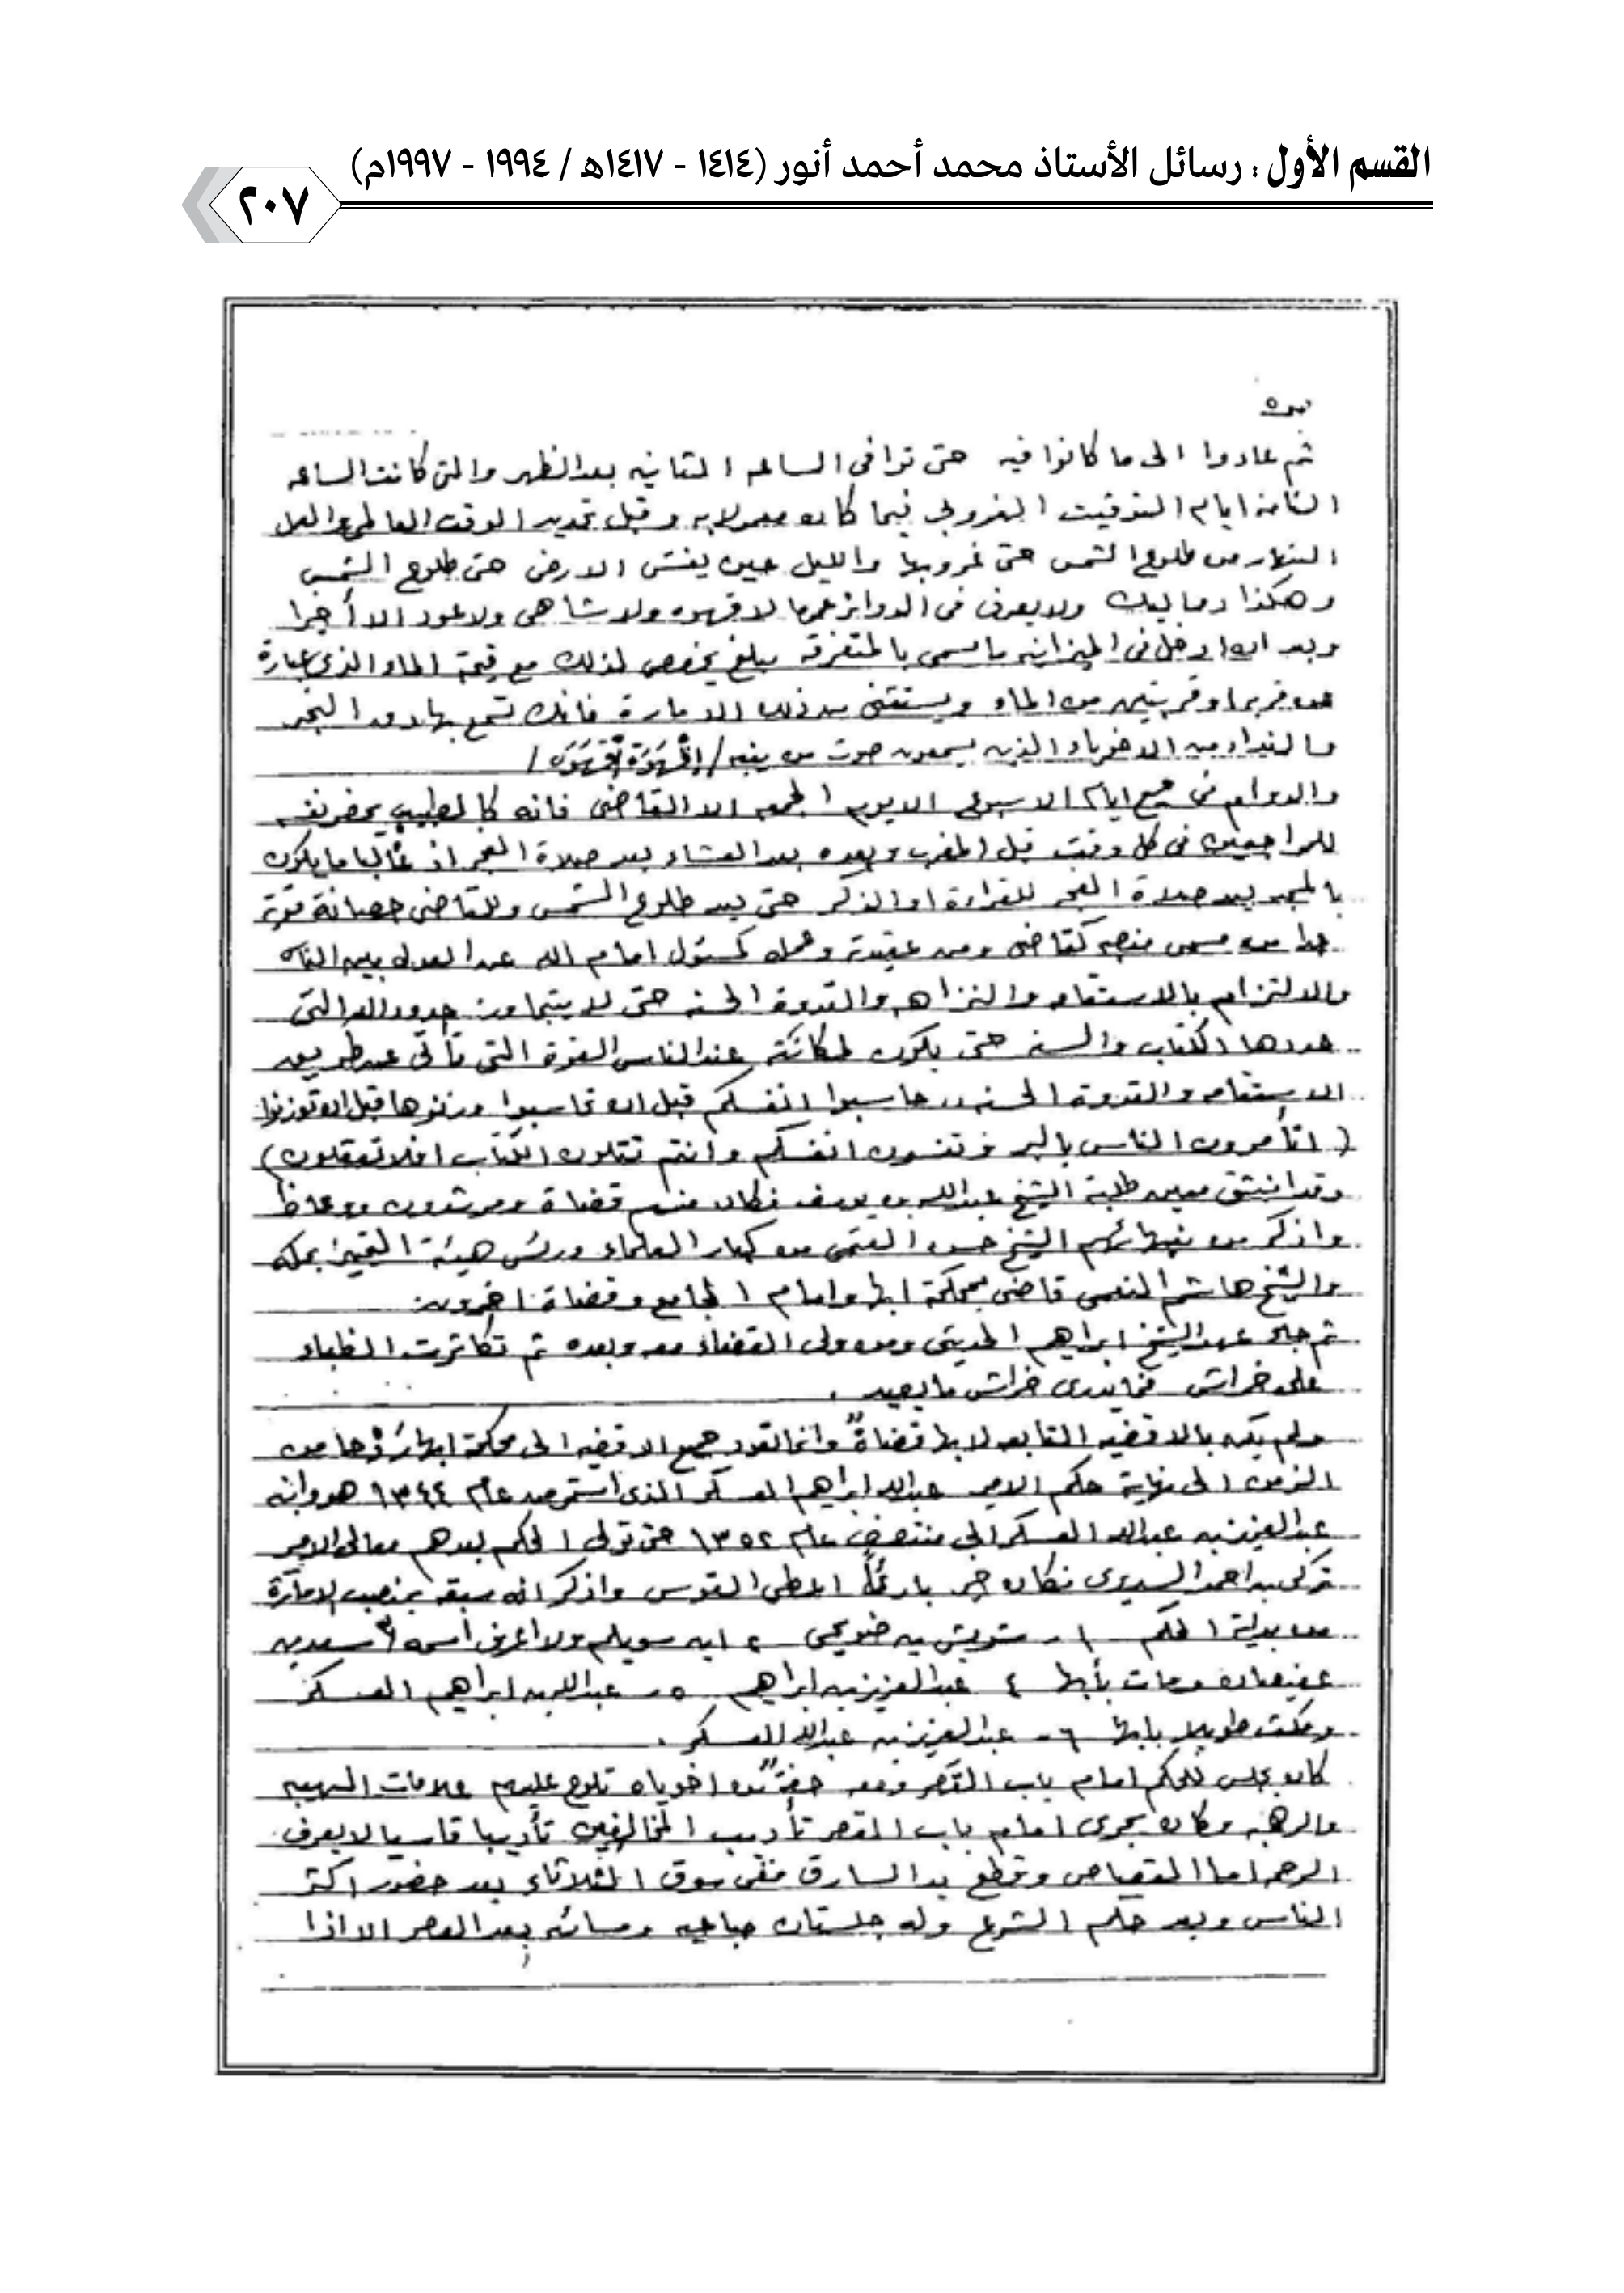 القسم الأول : رسائل الأستاذ محمد أحمد أنور (١٤١٤ - ١٤١٧هـ / ١٩٩٤ - ١٩٩٧م)
٢٠٧
ثم عادوا الى ما كانوا فيه حتى توافى الساعه الثانيه بعد الظهر والتى كانت الساعه
الثامنه ايام التوقيت الغروبى فيما كان معمولا به وقبل تحديد الوقت العالمى والعمل
النهار من طلوع الشمس حتى غروبها والليل حين يغشى الارض حتى طلوع الشمس
وهكذا دواليك ولا يعرف فى الدوائر عموما لا قهوه ولا شاهى ولا عود الا أخيرا
وبعد ان ادخل فى الميزانيه ما يسمى بالمتفرقه مبلغ يخصص لذلك مع قيمة الماء الذى عبارة
عن قربه او قربتين من الماء ويستثنى من ذلك الاماره فانك تسمع بهاون النجر
والنداء من الاخوياء الذين يسمعون صوت من ينبه / اِقْهَوَهْ اِقْهَوَهْ /
والدوام فى جميع ايام الاسبوع الا يوم الجمعه الا القاضى فانه كالطبيب يحضر نفسه
للمراجعين فى كل وقت قبل المغرب وبعده بعد العشاء بعد صلاة الفجر اذ غالبا ما يكون
بالمسجد بعد صلاة الفجر للقراءة او الذكر حتى بعد طلوع الشمس وللقاضى حصانة قوية
جدا من مسمى منصبه كقاضى ومن عقيدته وعمله كمسئول امام الله عن العدل بين الناس
والالتزام بالاستقامه والنزاهه والقدوة الحسنه حتى لا يتجاوز حدود الله التى
حددها الكتاب والسنه حتى يكون لمكانته عند الناس القوة التى تأتى عن طريق
الاستقامه والقدوة الحسنه ,, حاسبوا انفسكم قبل ان تحاسبوا وزنوها قبل ان توزنوا
( اتأمرون الناس بالبر وتنسون انفسكم وانتم تتلون الكتاب افلا تعقلون )
وقد انبثق معين طلبة الشيخ عبدالله بن يوسف فكان منهم قضاة ومرشدون ووعاظ
واذكر من نبهائهم الشيخ حسن العتمى من كبار العلماء ورئيس هيئة التمييز بمكه
والشيخ هاشم النعمى قاضى بمحكمة ابها وامام الجامع وقضاة اخرون
ثم جاء عهد الشيخ ابراهيم الحديثى ومن ولى القضاء معه وبعده ثم تكاثرت الظباء
على خراش فما يدرى خراش ما يصيد .
ولم يكن بالاقضيه التابعه لابها قضاةٌ وانما تعود جميع الاقضيه الى محكمة ابها ردْحا من
الزمن الى نهاية حكم الامير عبدالله ابراهيم العسكر الذى استمر من عام ١٣٤٤ هو وابنه
عبدالعزيز بن عبدالله العسكر الى منتصف عام ١٣٥٢ حتى تولى الحكم بعدهم معالى الامير
تركى بن احمد السديرى فكان خير بارئٍ اعطى القوس واذكر انه سبقه بمنصب الامارة
من بداية الحكم ١ - شويش بن ضويحى ٢ ابن سويلم ولا اعرف اسمه ٣ سعد بن
عفيصان ومات بأبها ٤ عبدالعزيز بن ابراهيم ٥ - عبدالله بن ابراهيم العسكر
ومكث طويلا بابها ٦ - عبدالعزيز بن عبدالله العسكر .
كان يجلس للحكم امام باب القصر ومعه حفنةٌ من اخوياه تلوح عليهم علامات الهيبه
والرهبه وكان يجرى امام باب القصر تأديب المخالفين تأديبا قاسيا لا يعرف
الرحمه اما القصاص وقطع يد السارق ففى سوق الثلاثاء بعد حضور اكثر
الناس وبعد حكم الشرع وله جلستان صباحيه ومسائيه بعد العصر الا اذا